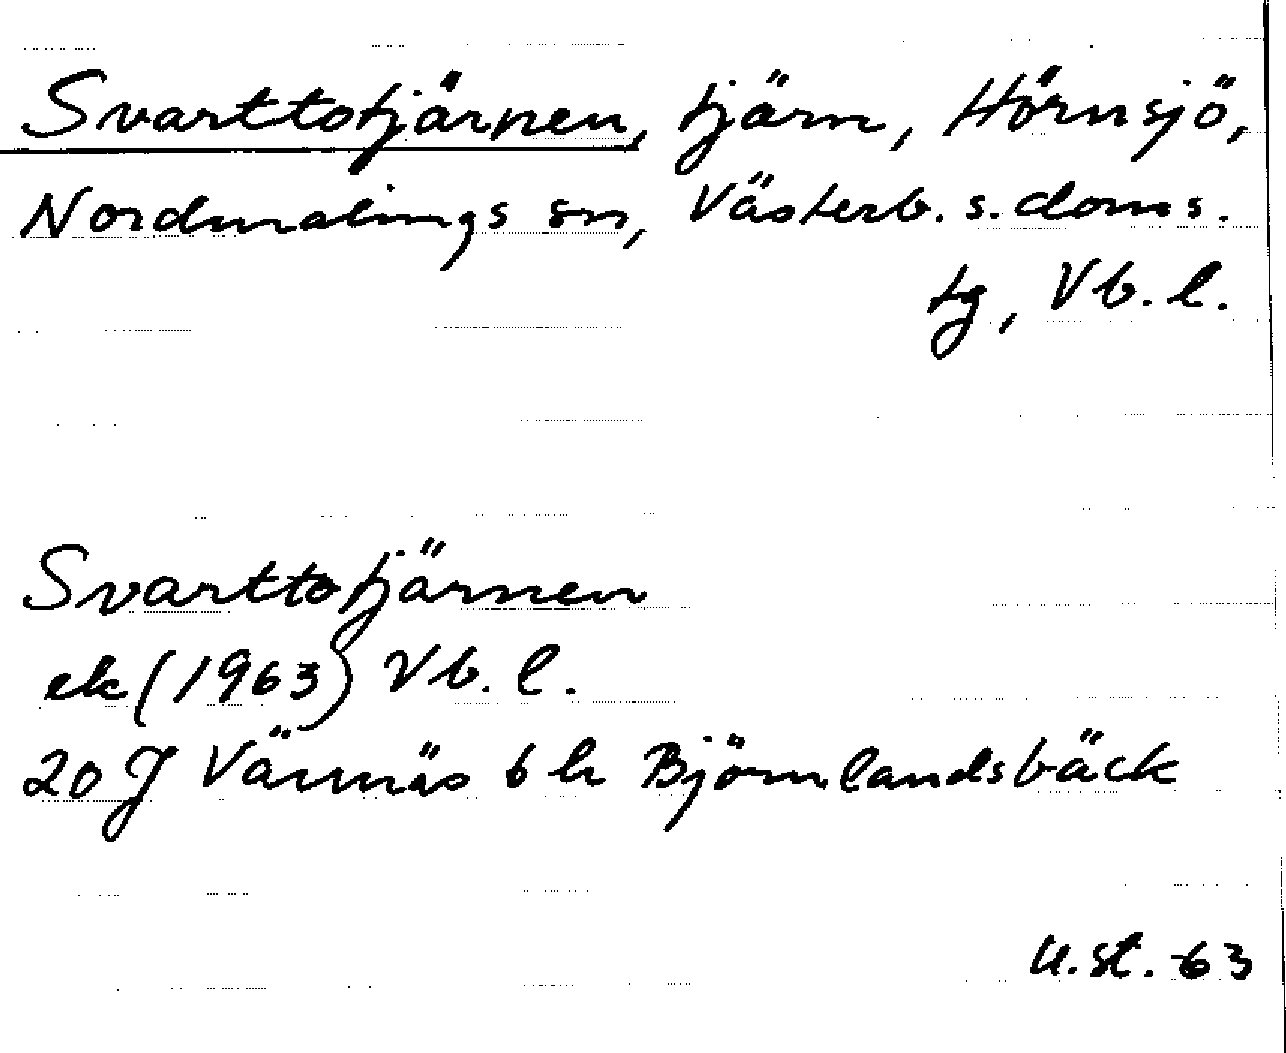 Svarttotjärnen, tjärn, Hörnsjö,
Nordmalings sn, Västerb. s. doms.
tg, Vb. l.
Svarttotjärnen
ek (1963) Vb. l.
20 J Värnäs 6 h Björnlandsbäck
U. st. -63